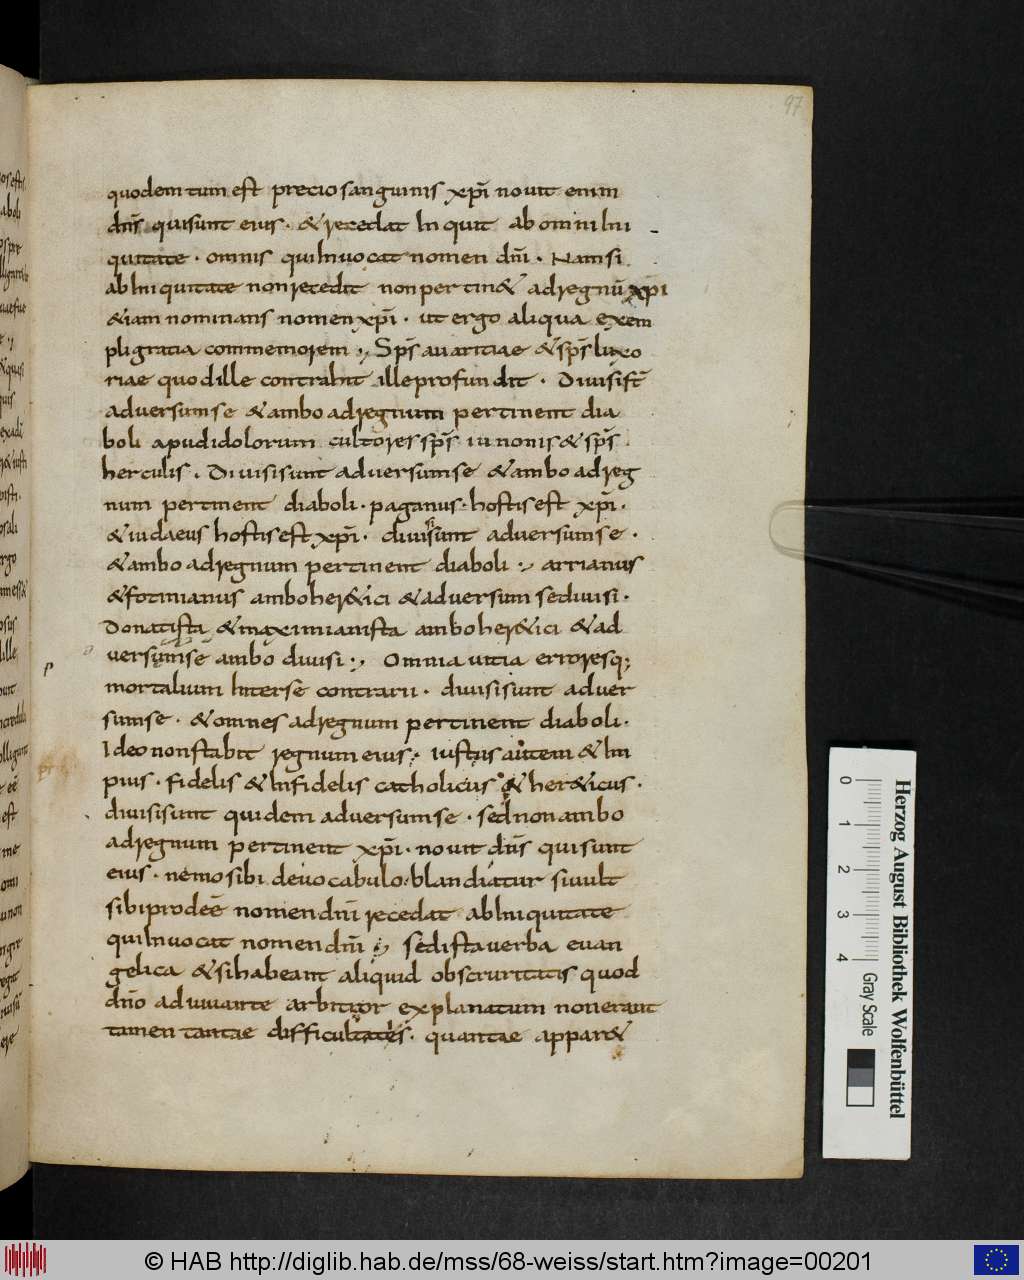 97
quod emtum est precio sanguinis xpi̅ novit enim
dn̅s qui sunt eius · & recedat Inquit ab omni Ini
quitate · omnis qui Invocat nomen dn̅i · Nam si
ab Iniquitate non recedit non pertin& ad regnu̅ xpi
&iam nominans nomen xpi̅ · ut ergo aliqua exem
pli gratia commemorem ·, Sps̅ avaritiae & sps̅ luxo
riae quod ille contrahit ille profundit · Divisi st̅
adversum se & ambo ad regnum pertinent dia
boli apud idolorum cultores sps̅ iunonis & sps̅
herculis . Divisi sunt adversum se & ambo ad reg
num pertinent diaboli · paganus · hostis est xpi̅ ·
& iudaeus hostis est xpi̅ · divisi sunt adversum se ·
& ambo ad regnum pertinent diaboli ·, arrianus
& fotinianus ambo her&ici & adversum se divisi ·
Donatista & maximianista ambo her&ici & ad
versum se ambo divisi ·, Omnia vitia erroresq;
mortalium Inter se contrarii · divisi sunt adver
sum se · & omnes ad regnum pertinent diaboli ·
Ideo non stabit regnum eius ·, iustus autem & Im
pius · fidelis & Infidelis catholicus & her&icus ·
divisi sunt quidem adversum se · sed non ambo
ad regnum pertinent xpi̅ · novit dn̅s qui sunt
eius · nemo sibi de vocabulo blandiatur si vult
sibi prodee̅ nomen dn̅i recedat ab Iniquitate
qui Invocat nomen dn̅i ·, sed ista verba evan
gelica & si habeant aliquid obscuritatis quod
dn̅o adiuvante arbitror explanatum non erant
tamen tantae difficultatis · quantae appar&
Herzog August Bibliothek Wolfenbüttel
0 1 2 3 4
Gray Scale
© HAB http://diglib.hab.de/mss/68-weiss/start.htm?image=00201